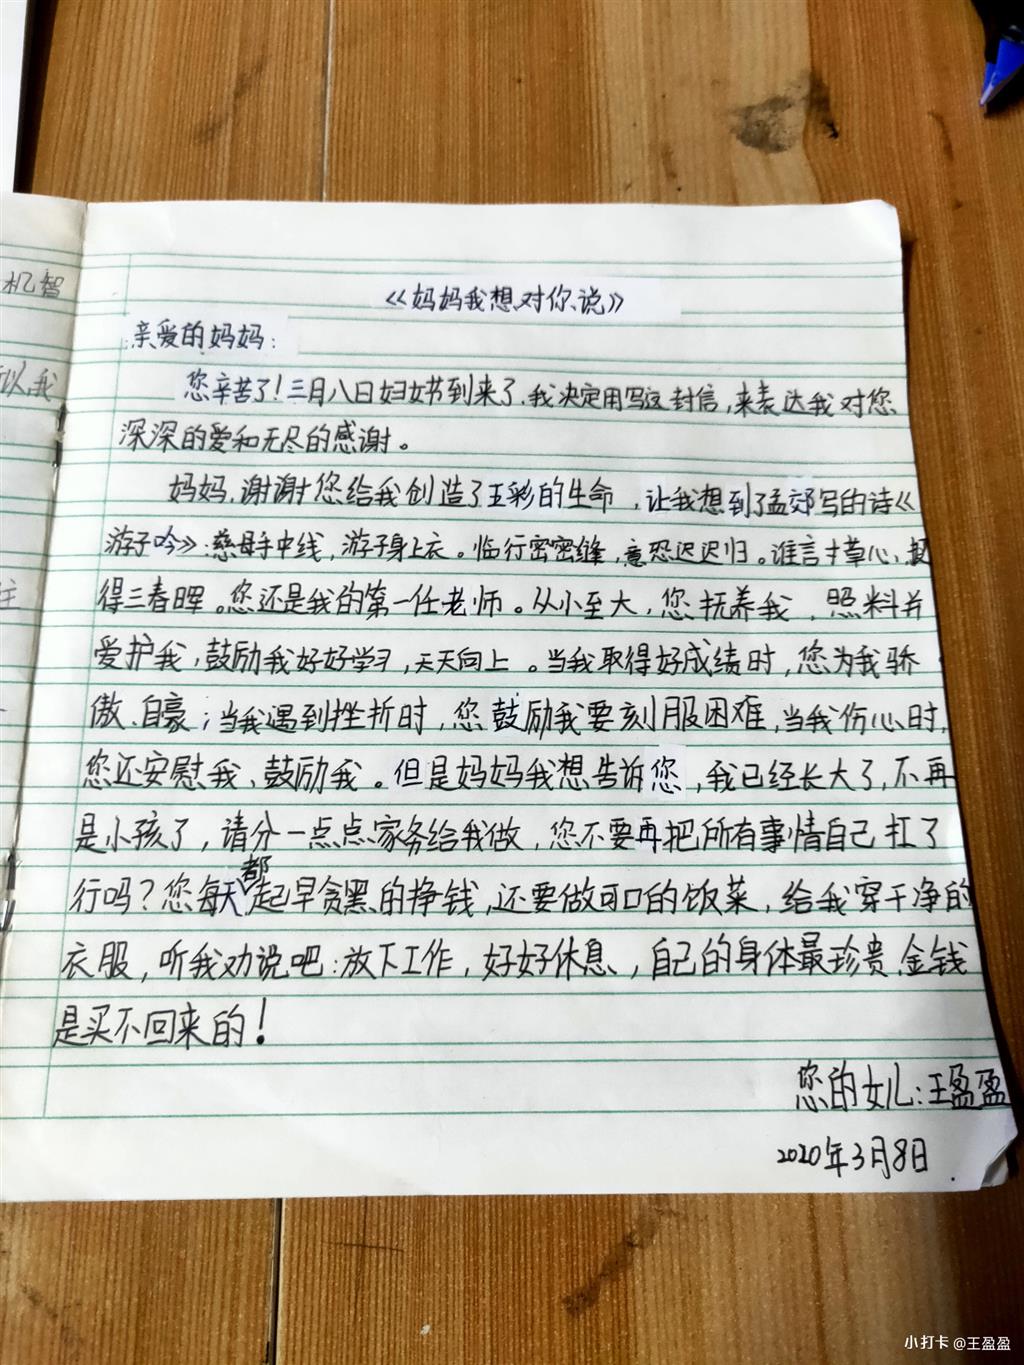 机智
以,我
《妈妈我想对你说》
亲爱的妈妈:
您辛苦了!三月八日妇女节到来了.我决定用写这封信,来表达我对您
深深的爱和无尽的感谢。
妈妈,谢谢您给我创造了五彩的生命,让我想到了孟郊写的诗《
游子吟》:慈母手中线,游子身上衣。临行密密缝,意恐迟迟归。谁言寸草心,报
得三春晖。您还是我的第一任老师。从小至大,您抚养我,照料并
爱护我,鼓励我好好学习,天天向上。当我取得好成绩时,您为我骄
傲、自豪;当我遇到挫折时,您鼓励我要刻服困难,当我伤心时,
您还安慰我、鼓励我。但是妈妈我想告诉您,我已经长大了,不再
是小孩了,请分一点点家务给我做,您不要再把所有事情自己扛了
行吗?您每天都起早贪黑的挣钱,还要做可口的饭菜,给我穿干净的
衣服,听我劝说吧:放下工作,好好休息,自己的身体最珍贵.金钱
是买不回来的!
您的女儿:王盈盈
2020年3月8日
小打卡 @王盈盈